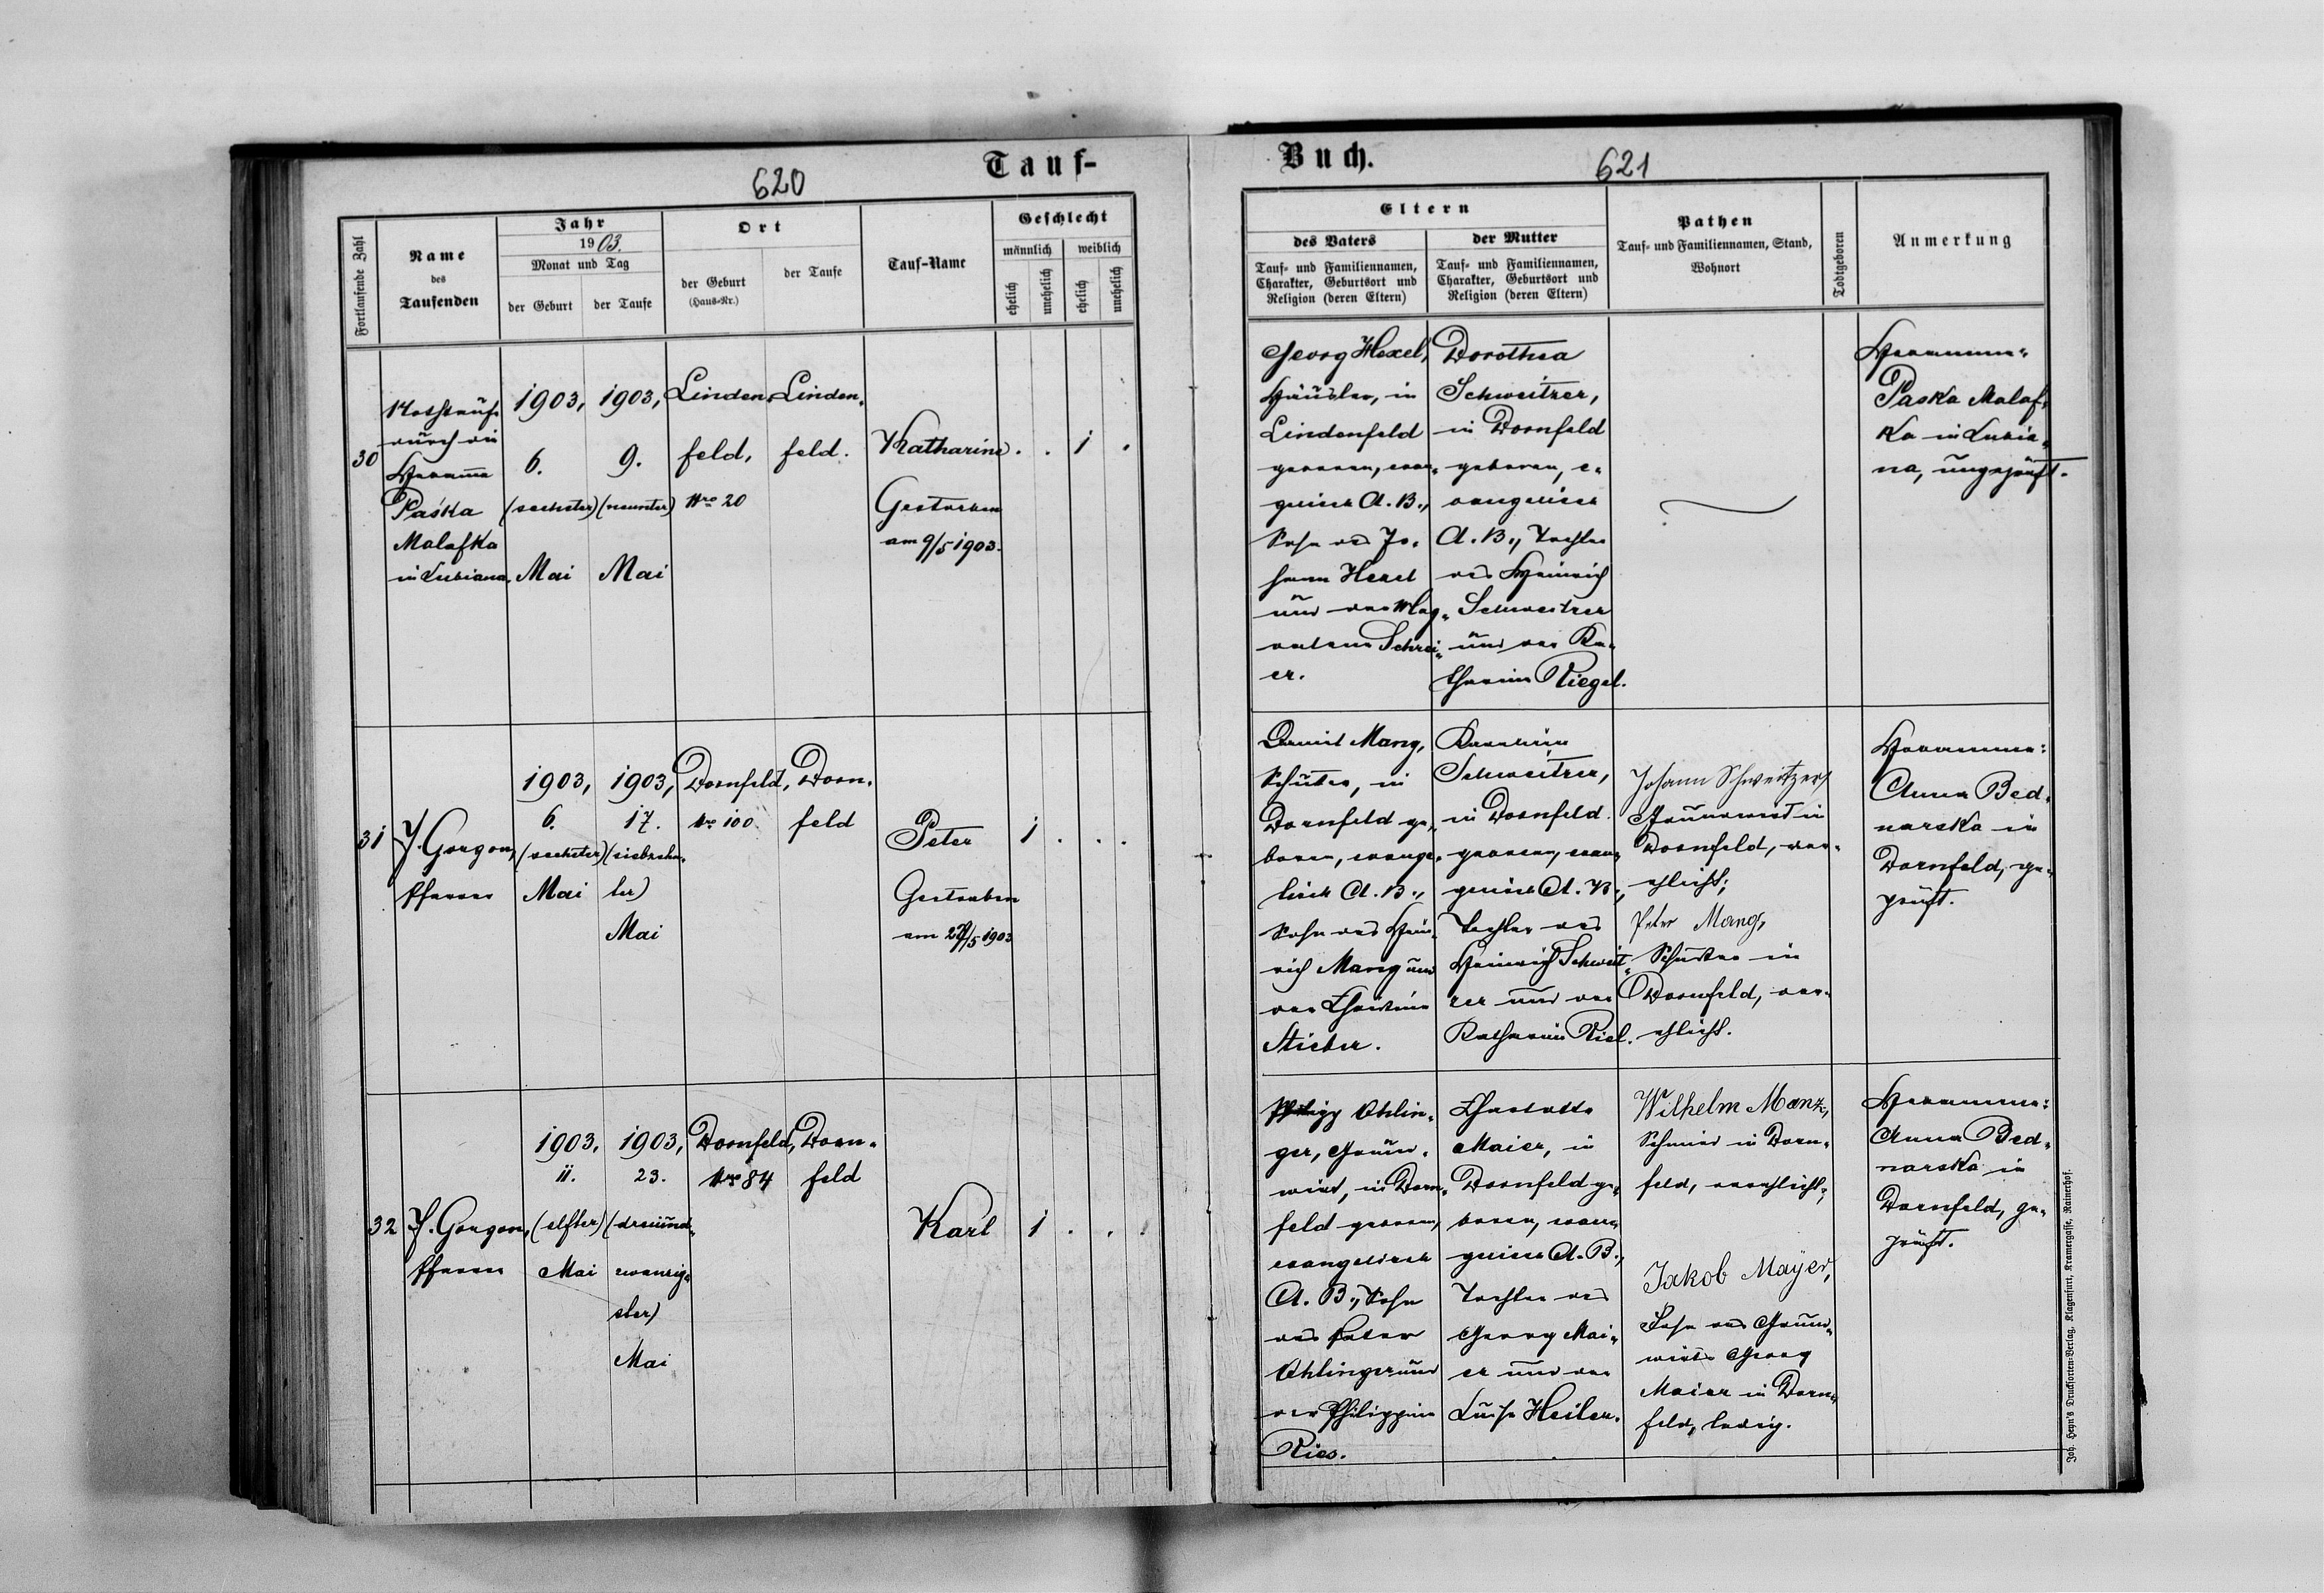 620
Tauf-
Fortlaufende Zahl
Name
des
Taufenden
Jahr
1903.
Monat und Tag
der Geburt
der Taufe
Ort
der Geburt
(Haus-Nr.)
der Taufe
Tauf-Name
Geschlecht
männlich
weiblich
ehelich
unehelich
ehelich
unehelich
30
Nothtaufe
durch die
Hebamme
Paśka
Malafka
in Lubiana.
1903,
6.
(sechster)
Mai
1903,
9.
(neunter)
Mai
Linden-
feld,
Nro 20
Linden-
feld.
Katharine
Gestorben
am 9/5 1903.
. . 1 .
31
J. Gorgon,
Pfarrer
1903,
6.
(sechster)
Mai
1903,
17.
(siebzehn-
ter)
Mai
Dornfeld,
Nro 100.
Dorn-
feld
Peter
Gestorben
am 1903
1 . . .
32
J. Gorgon,
Pfarrer
1903.
11.
(elfter)
Mai
1903,
23.
(dreiund-
zwanzig-
ster)
Mai
Dornfeld,
Nro 84
Dorn-
feld
Karl
1 . . .
Buch.
621
Eltern
des Vaters
Tauf- und Familiennamen,
Charakter, Geburtsort und
Religion (deren Eltern)
der Mutter
Tauf- und Familiennamen,
Charakter, Geburtsort und
Religion (deren Eltern)
Pathen
Tauf- und Familiennamen, Stand,
Wohnort
Todtgeboren
Anmerkung
Georg Hexel,
Häusler, in
Lindenfeld
geboren, evan-
gelisch A. B.,
Sohn des Jo-
hann Hexel
und der Mag-
dalena Schrei-
er.
Dorothea
Schweitzer,
in Dornfeld
geboren, e-
vangelisch
A. B., Tochter
des Heinrich
Schweitzer
und der Ka-
tharina Riegel.
Hebamme:
Paśka Malaf-
ka in Lubia-
na, ungeprüft.
Daniel Mang,
Schuster, in
Dornfeld ge-
boren, evange-
lisch A. B.,
Sohn des Hein-
rich Mang und
der Christine
Stieber.
Karoline
Schweitzer,
in Dornfeld
geboren, evan-
gelisch A. B.,
Tochter des
Heinrich Schweit-
zer und der
Katharina Riel.
Johann Schweitzer,
Grundwirt in
Dornfeld, ver-
ehlicht;
Peter Mang,
Schuster in
Dornfeld, ver-
ehlicht.
Hebamme:
Anna Bed-
narska in
Dornfeld, ge-
prüft.
Philipp Ohlin-
ger, Grund-
wirt, in Dorn-
feld geboren,
evangelisch
A. B., Sohn
des Peter
Ohlinger und
der Philippine
Ries.
Charlotte
Maier, in
Dornfeld ge-
boren, evan-
gelisch A. B.,
Tochter des
Georg Mai-
er und der
Luise Heiler.
Wilhelm Manz,
Schmied in Dorn-
feld, verehlicht;
Jakob Mayer,
Sohn des Grund-
wirts Georg
Maier in Dorn-
feld, ledig.
Hebamme:
Anna Bed-
narska in
Dornfeld, ge-
prüft.
Joh. Heyn's Drucksorten-Verlag, Klagenfurt, Kramergasse, Rainerhof.